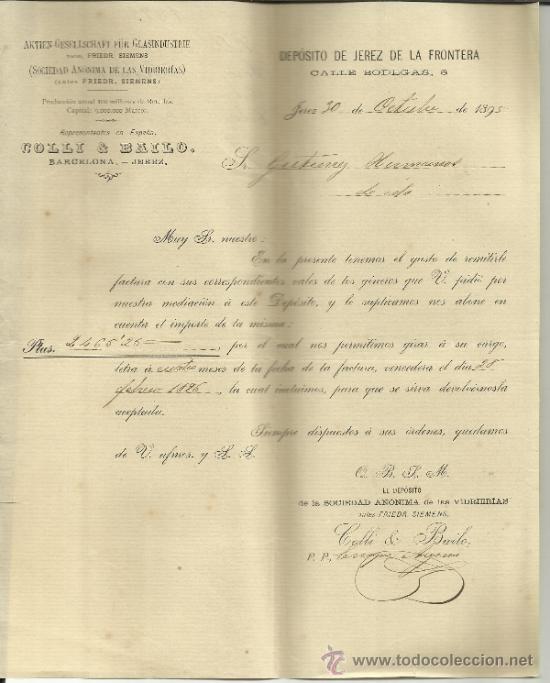 AKTIEN-GESELLSCHAFT FÜR GLASINDUSTRIE
vorm. FRIEDR. SIEMENS
(SOCIEDAD ANÓNIMA DE LAS VIDRIERÍAS)
(antes FRIEDR. SIEMENS)
Producción anual 100 millones de Bot. las.
Capital: 9.000.000 Marcos.
Representantes en España,
COLLI & BAILO,
BARCELONA. – JEREZ.
DEPÓSITO DE JEREZ DE LA FRONTERA
CALLE BODEGAS, 8
Jerez 30 de Octubre de 1895
S. Gutierrez Hermanos
de esta
Muy Sr. nuestro:
En la presente tenemos el gusto de remitirle
factura con sus correspondientes vales de los géneros que V. pidió por
nuestra mediación á este Depósito, y le suplicamos nos abone en
cuenta el importe de la misma:
Ptas. 2465'25 por el cual nos permitimos girar á su cargo,
letra á cuatro meses de la fecha de la factura, vencedera el día 28
febrero 1896, la cual incluimos, para que se sirva devolvérnosla
aceptada.
Siempre dispuestos á sus órdenes, quedamos
de V. afmos. y S. S.
Q. B. S. M.
EL DEPÓSITO
de la SOCIEDAD ANÓNIMA de las VIDRIERÍAS
antes FRIEDR. SIEMENS,
Colli & Bailo
P. P.
todocoleccion
www.todocoleccion.net